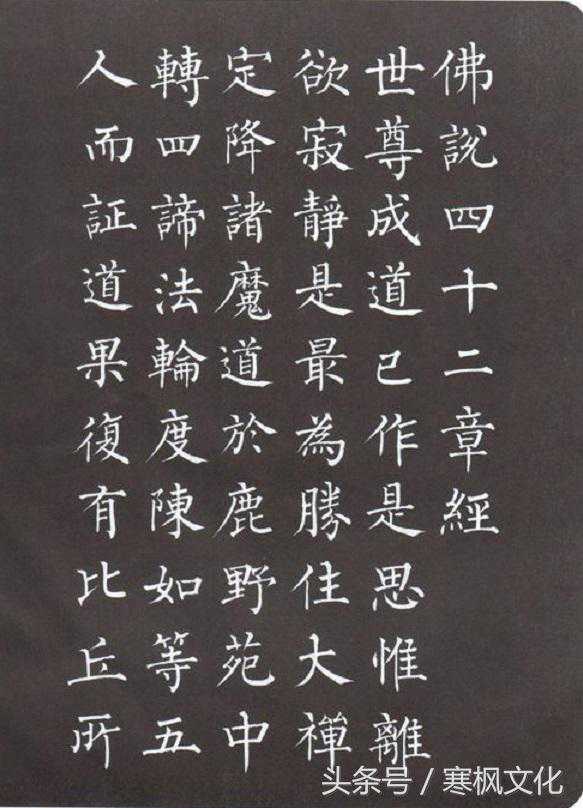 佛說四十二章經
世尊成道已作是思惟離
欲寂靜是最為勝住大禪
定降諸魔道於鹿野苑中
轉四諦法輪度陳如等五
人而証道果復有比丘所
头条号 / 寒枫文化